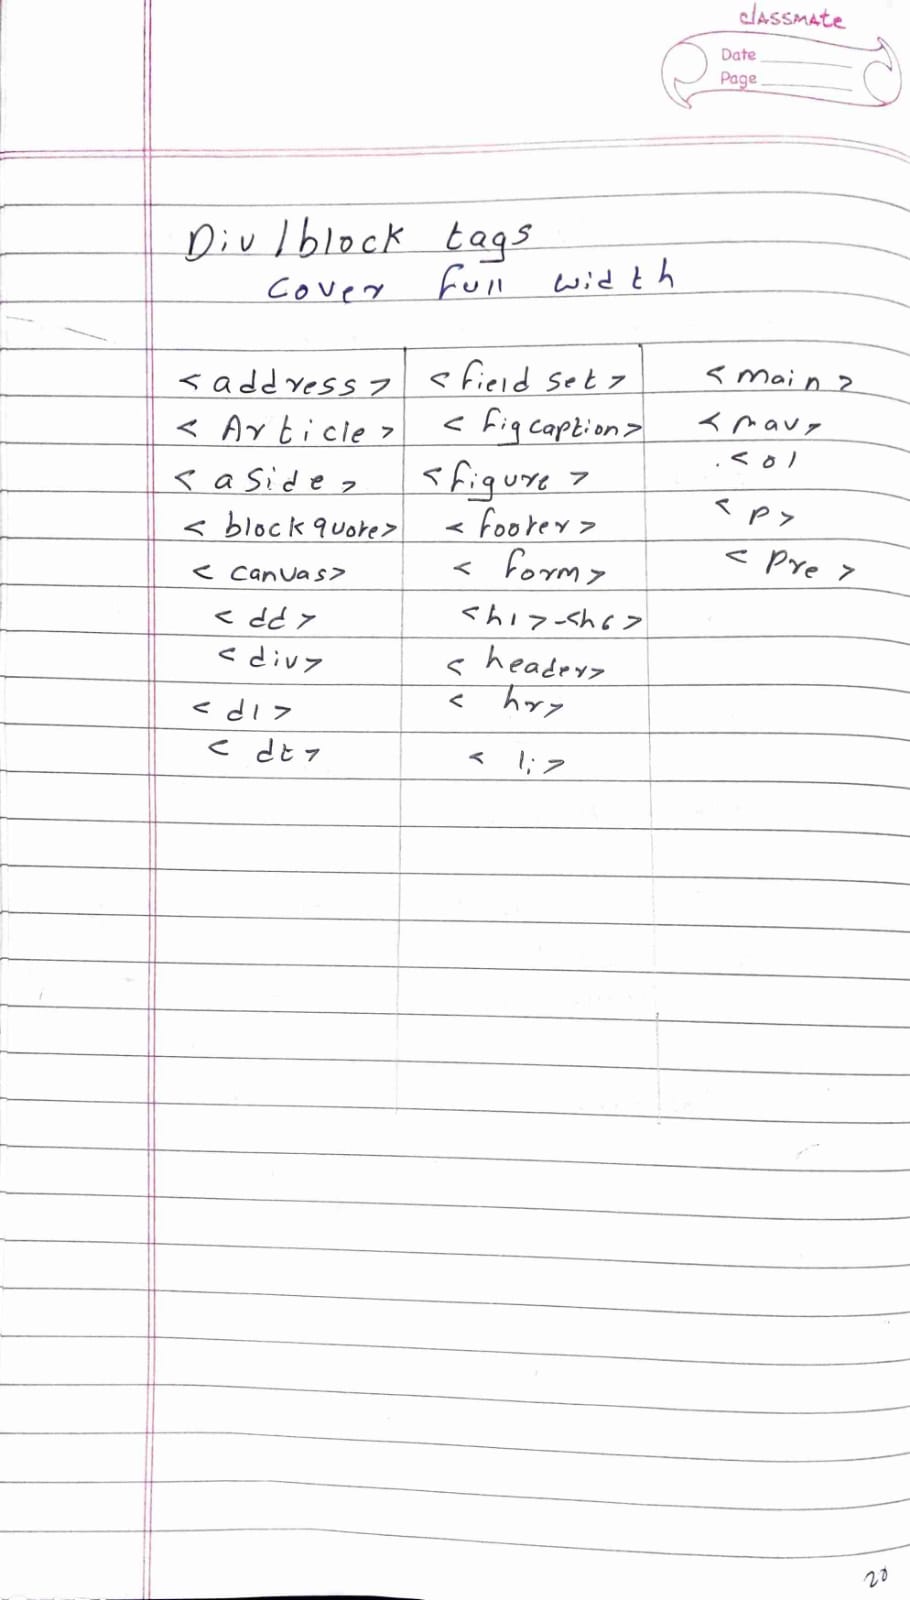 classmate
Date
Page
Div/block tags
cover full width
<address> <field set> <main>
<Article> <figcaption> <nav>
<aside> <figure> <ol
<blockquote> <footer> <p>
<canvas> <form> <pre>
<dd> <h1>-<h6>
<div> <header>
<dl> <hr>
<dt> <li>
20